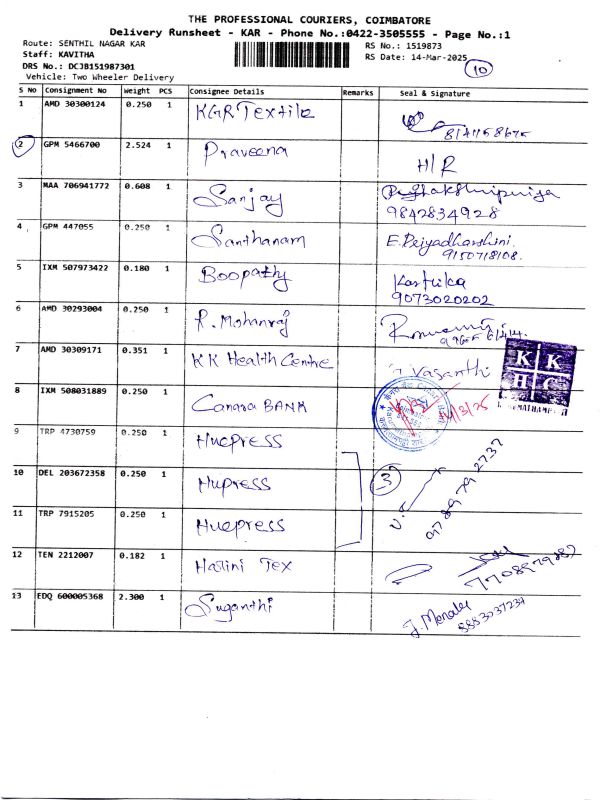 THE PROFESSIONAL COURIERS, COIMBATORE
Delivery Runsheet - KAR - Phone No.:0422-3505555 - Page No.:1
Route: SENTHIL NAGAR KAR
RS No.: 1519873
Staff: KAVITHA
RS Date: 14-Mar-2025
DRS No.: DCJB151987301
10
Vehicle: Two Wheeler Delivery
S No Consignment No Weight PCS Consignee Details Remarks Seal & Signature
1 AMD 30300124 0.250 1 KGR Textile
2 GPM 5466700 2.524 1 Praveena H/R
3 MAA 706941772 0.608 1 Sanjay
9842834928
4 GPM 447055 0.250 1 Santhanam E. Priyadharshini.
9150718108.
5 IXM 507973422 0.180 1 Boopathy Kartika
9073020202
6 AMD 30293004 0.250 1 R. Mohanraj
7 AMD 30309171 0.351 1 KK Health Centre Vasanthi
K K
H C
8 IXM 508031889 0.250 1 Canara BANK
9 TRP 4730759 0.250 1 Huepress
10 DEL 203672358 0.250 1 Hupress 3
11 TRP 7915205 0.250 1 Huepress
12 TEN 2212007 0.182 1 Hasini Tex
13 EDQ 600005368 2.300 1 Suganthi
8883037234